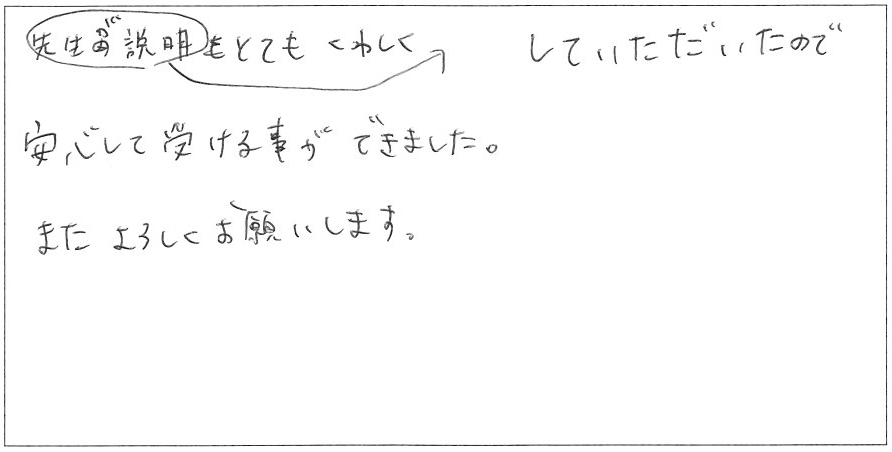 先生が説明をとてもくわしく していただいたので
安心して受ける事ができました。
またよろしくお願いします。